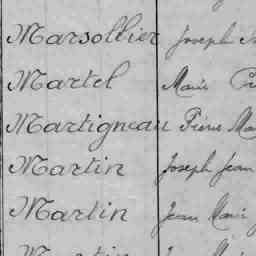 Marsollier Joseph
Martel Marie
Martigneau Pierre
Martin Joseph Jean
Martin Jean Marie
Martin